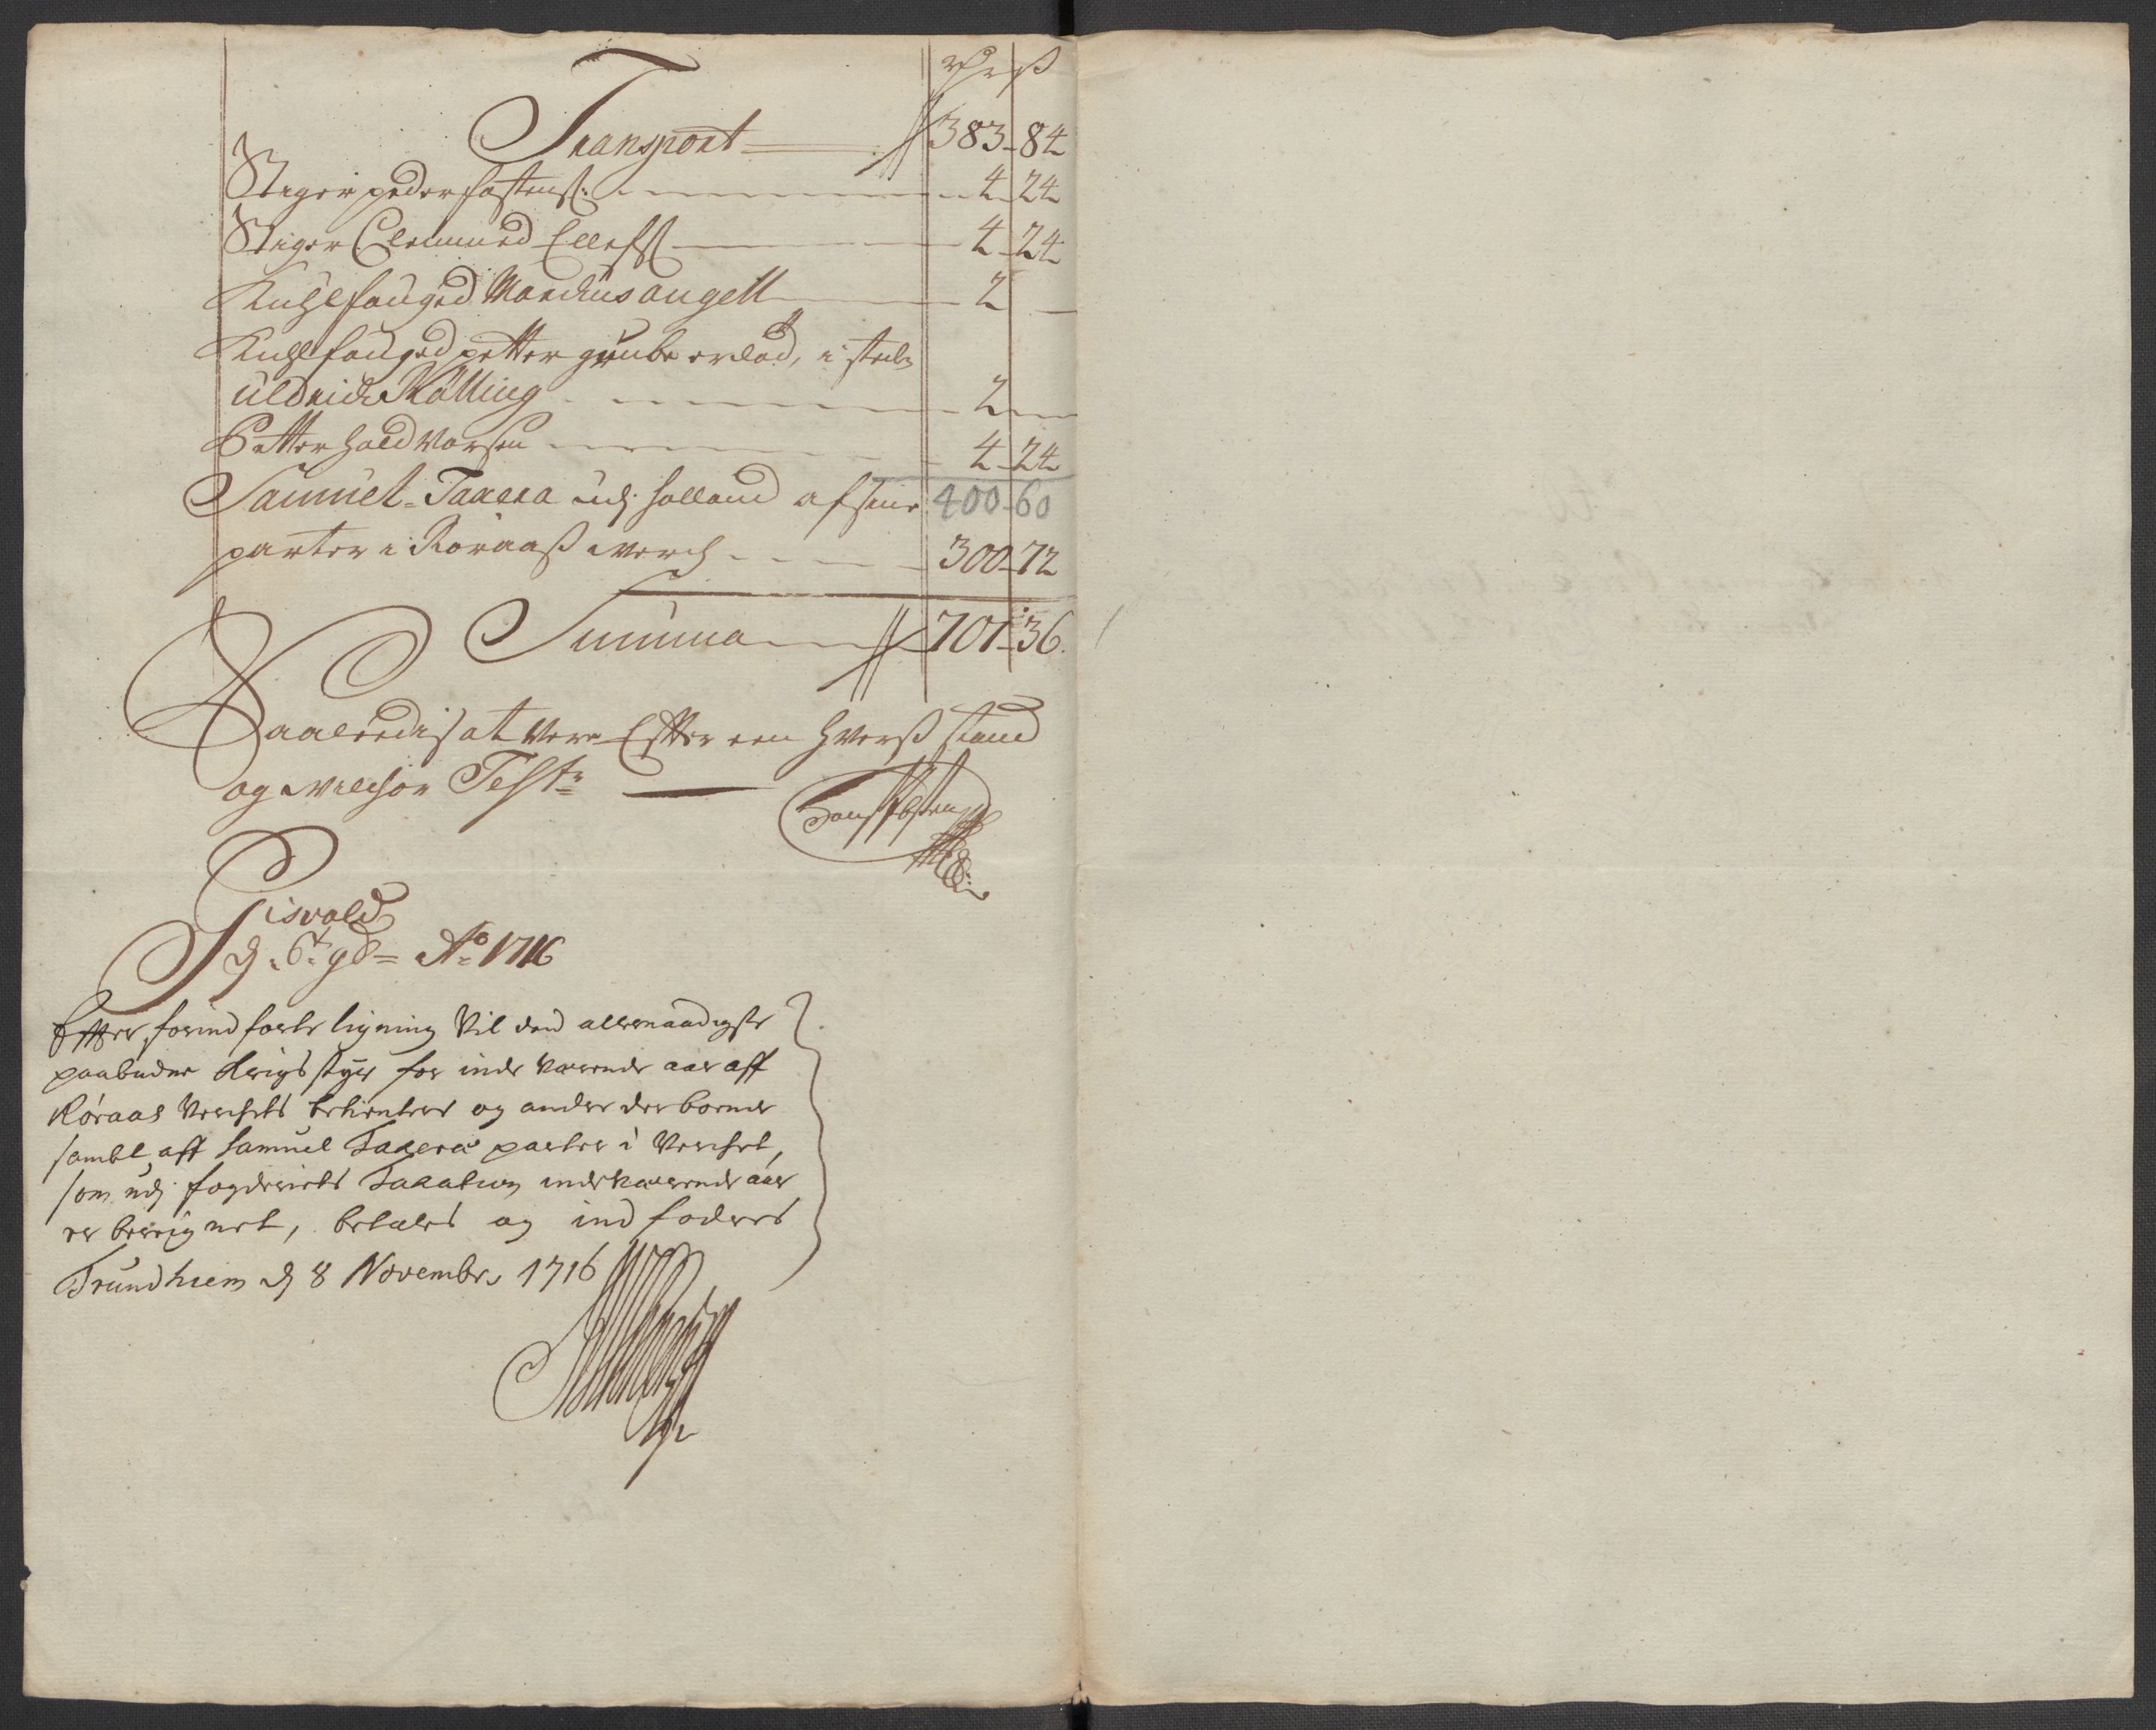 rdr ß
Transport 383 - 84
Stiger peder fastens: 4 24
Stiger Clemmed Ellefs: 4 - 24
Kuhlfouged Mandrus angell 2 -
Kuhlfouged petter grube erlod, i sted
uldrich Kölling 2
Petter haldvorsen 4 - 24
400 - 60
Samuel Taxera udj: holland af sine
parter i Röraaß werch 300 - 72
Summa 701 - 36.
Saaledis at vere Efter een hverß stand
og wilchor Test:
Eisvold
d: 6t 9b: Ao 1716
Efter forind forte ligning Vil den allernaadigste
paabudne Krigs styr for inde værende aar aff
Röraas Verchets betienter og andre der boende
sambt aff Samuel Taxera parter i Verchet,
som udj fogderiets Taxation inde værende aar
er beregnet, betales og ind fodres
Trundhiem d 8 Novembr 1716